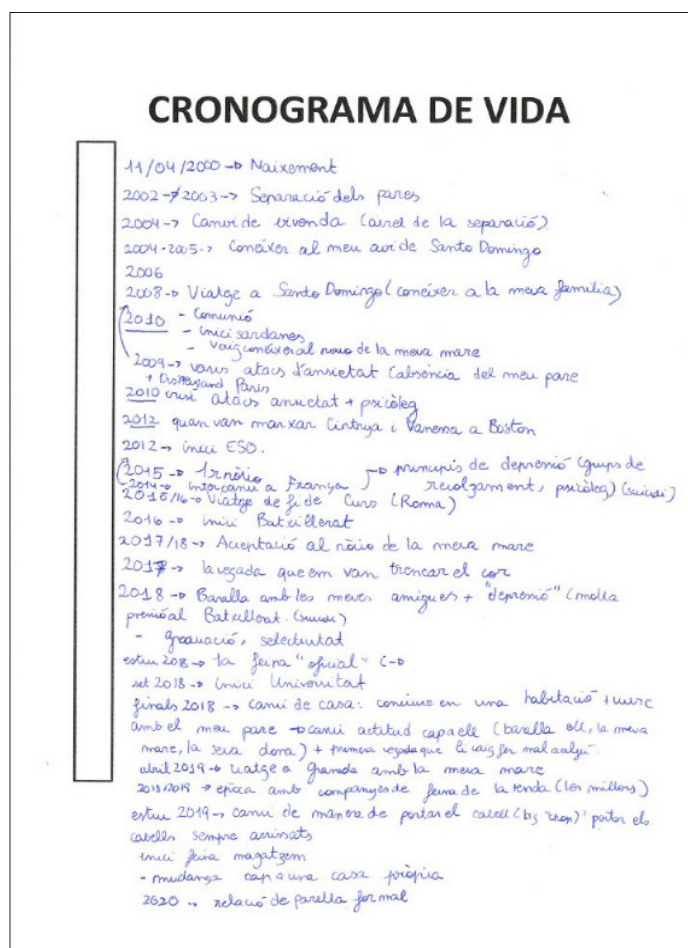 CRONOGRAMA DE VIDA
11/04/2000 → Naixement
2002 → 2003 → Separació dels pares
2004 → Canvi de vivenda (arrel de la separació)
2004-2005 → Conèixer al meu avi de Santo Domingo
2006
2008 → Viatge a Santo Domingo (conèixer a la meva família)
2010 - Comunió
- inici sardanes
- Vaig conèixer al novio de la meva mare
2009 → varis atacs d'ansietat (absència del meu pare
+ Disneyland París
2010 crisi atacs ansietat + psicòleg
2012 quan van marxar Cinthya i Vanessa a Boston
2012 → inici ESO.
2015 → 1r nòvio
2014 → intercanvi a França → principis de depressió (grups de
recolzament, psicòleg) (suicidi)
2015/16 → Viatge de fi de Curs (Roma)
2016 → inici Batxillerat
2017/18 → Acceptació al nòvio de la meva mare
2017 → 1a vegada que em van trencar el cor
2018 → Baralla amb les meves amigues + "depressió" (molta
pressió al Batxillerat. (suicidi)
- graduació, selectivitat
estiu 208 → 1a feina "oficial"
set 2018 → inici Universitat
finals 2018 → canvi de casa: conviure en una habitació + viure
amb el meu pare → canvi actitud cap a ell (baralla ell, la meva
mare, la seva dona) + primera vegada que li vaig fer mal a algú.
abril 2019 → viatge a Granada amb la meva mare
2018/2019 → època amb companyes de feina de la tenda (les millors)
estiu 2019 → canvi de manera de portar el cabell (big "chop") portar els
cabells sempre arrissats
inici feina magatzem
- mudança cap a una casa pròpia
2020 → relació de parella formal